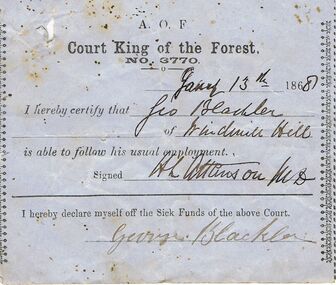 A. O. F
Court King of the Forest,
NO. 3770.
Jany 13th 1868
I hereby certify that Geo Blackler
of Windmill Hill
is able to follow his usual employment.
Signed H L Atkinson MD
I hereby declare myself off the Sick Funds of the above Court.
George Blackler